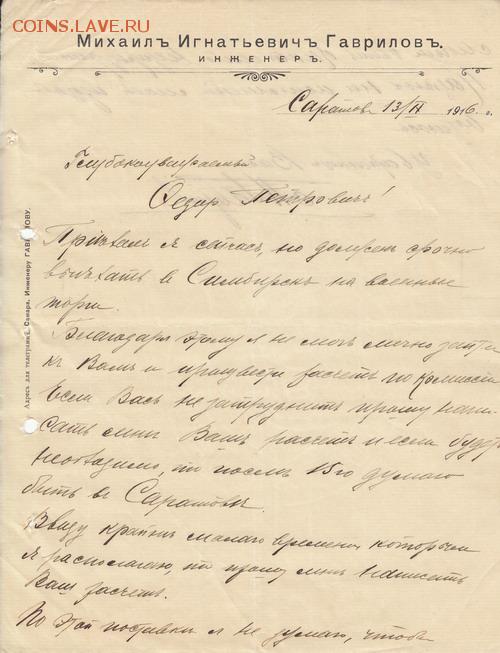 COINS.LAVE.RU
Михаилъ Игнатьевичъ Гавриловъ.
ИНЖЕНЕРЪ.
Саратов 13/II 1916 г.
Глубокоуважаемый
Федор Петровичъ!
Пріѣхалъ я сейчасъ, но долженъ срочно
выѣхать в Симбирскъ на военные
торги.
Благодаря этому я не могъ лично зайти
къ Вамъ и произвести расчетъ по комисс
Если Васъ не затруднитъ прошу напи
сать мнѣ Вашъ расчетъ и если будетъ
необходимо, то послѣ 15го думаю
быть въ Саратовѣ.
Ввиду крайнѣ малаго времени которымъ
я располагаю, то прошу мнѣ написать
Ваш расчетъ.
По этой поставки я не думаю, чтобы
Адресъ для телеграммъ: Самара, Инженеру ГАВРИЛОВУ.